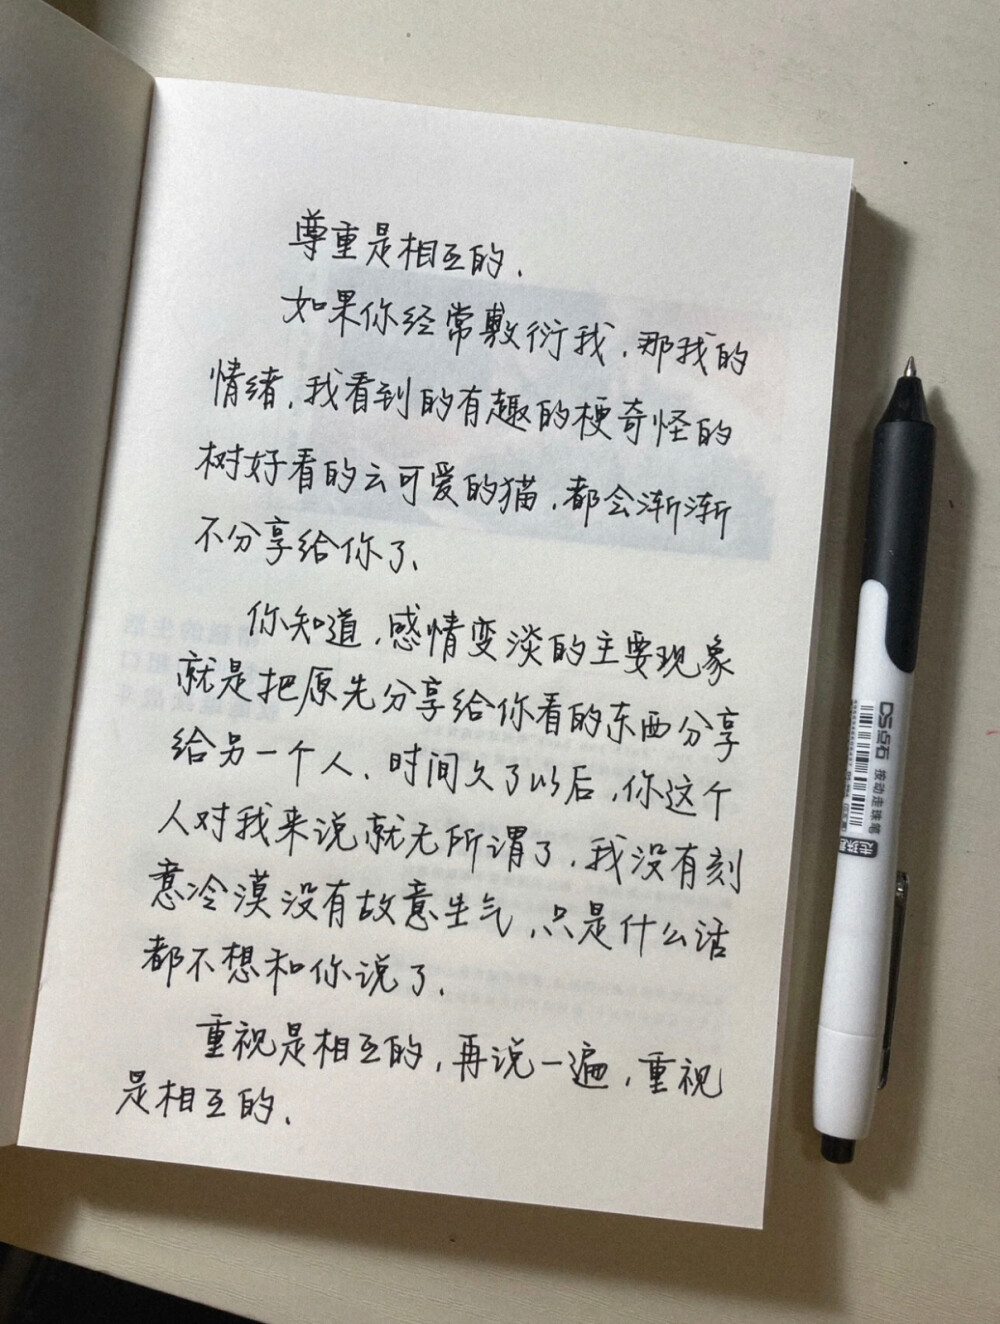 尊重是相互的.
如果你经常敷衍我,那我的
情绪,我看到的有趣的梗奇怪的
树好看的云可爱的猫,都会渐渐
不分享给你了、
你知道,感情变淡的主要现象
就是把原先分享给你看的东西分享
给另一个人,时间久了以后,你这个
人对我来说就无所谓了,我没有刻
意冷漠没有故意生气,只是什么话
都不想和你说了、
重视是相互的,再说一遍,重视
是相互的、
DS点石 按动走珠笔